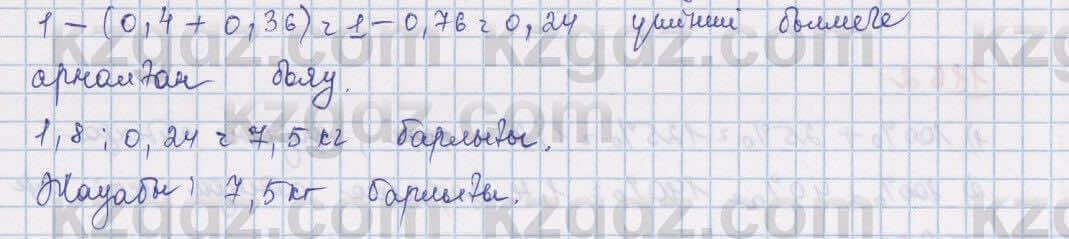 1 - (0,4 + 0,36) = 1 - 0,76 = 0,24 үшінші бөлмеге
арналған бояу.
1,8 : 0,24 = 7,5 кг барлығы.
Жауабы: 7,5 кг барлығы.